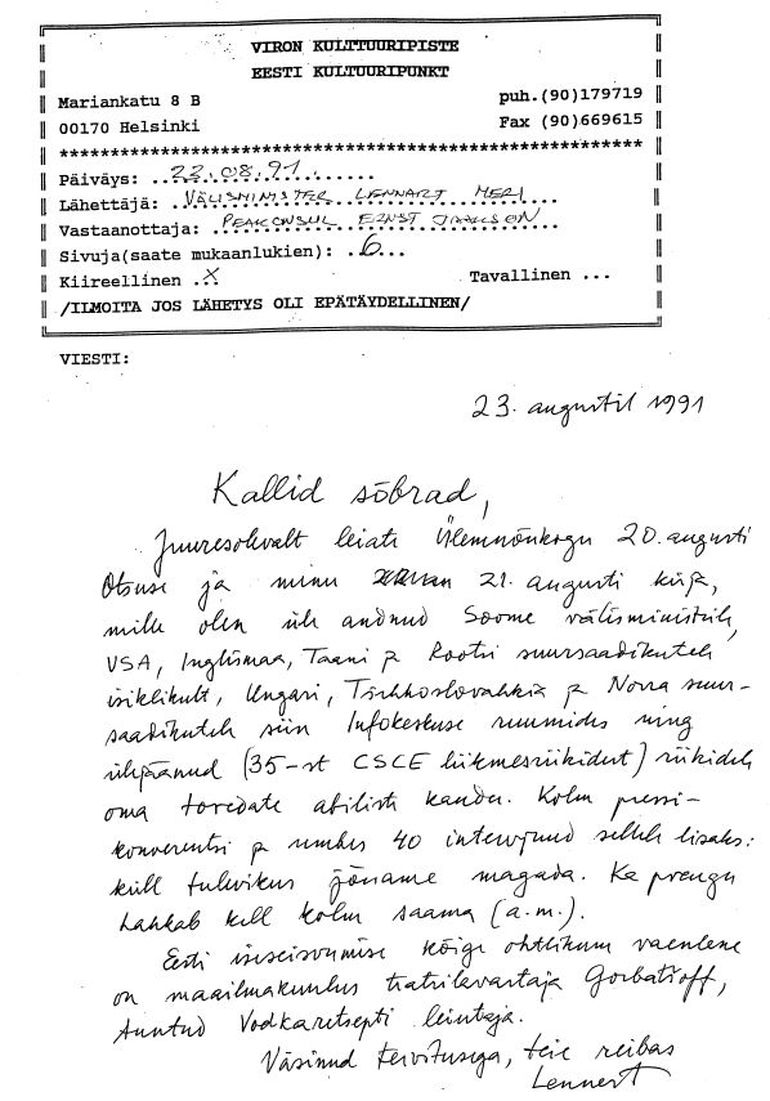 VIRON KULTTUURIPISTE
EESTI KULTUURIPUNKT
Mariankatu 8 B puh.(90)179719
00170 Helsinki Fax (90)669615
************************************************************
Päiväys: ..23.08.91.......
Lähettäjä: .VÄLISMINISTER LENNART MERI...
Vastaanottaja: .PEAKONSUL ERNST JAAKSON..
Sivuja(saate mukaanlukien): ..6...
Kiireellinen ..X Tavallinen ...
/ILMOITA JOS LÄHETYS OLI EPÄTÄYDELLINEN/
VIESTI:
23. augustil 1991
Kallid sõbrad,
Juuresolevalt leiate Ülemnõukogu 20. augusti
Otsuse ja minu 21. augusti kirja,
mille olen üle andnud Soome välisministrile,
USA, Inglismaa, Taani ja Rootsi suursaadikutele
isiklikult, Ungari, Tšehhoslovakkia ja Norra suur-
saadikutele siin Infokeskuse ruumides ning
ülejäänud (35-st CSCE liikmesriikidest) riikidele
oma toredate abiliste kaudu. Kolm pressi-
konverentsi ja umbes 40 intervjuud sellele lisaks:
küll tulevikus jõuame magada. Ka praegu
hakkab kell kolm saama (a.m.).
Eesti iseseisvumise kõige ohtlikum vaenlane
on maailmakuulus teatrilavastaja Gorbatšoff,
tuntud Vodkaretsepti leiutaja.
Väsinud tervitusega, teie reibas
Lennart